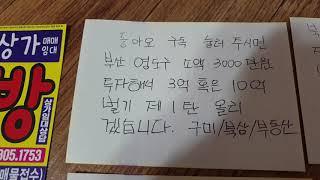 상가 매매 임대
방
상가임대상담
905.1753
매물접수)
좋아요 구독 눌러 주시면
부산 영도구 소액 3000만원
투자해서 3억 혹은 10억
벌기 제 1탄 올리
겠습니다. 구미/복삼/부동산